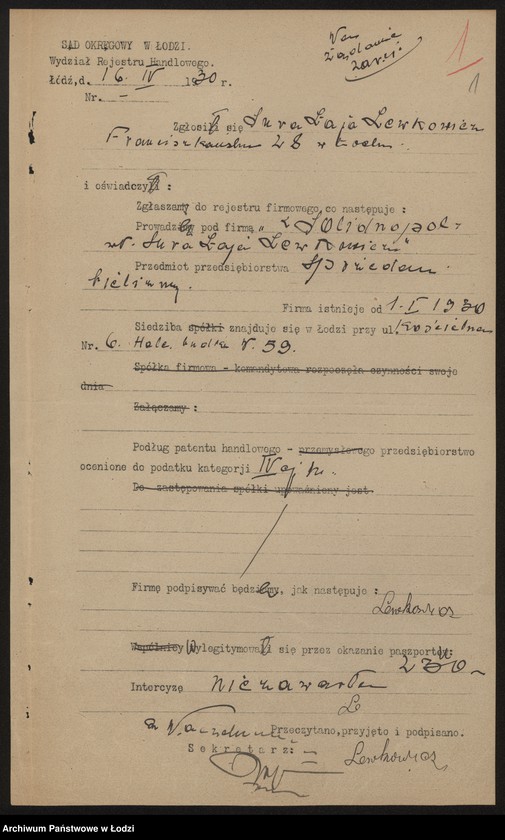 SĄD OKRĘGOWY W ŁODZI.
Wydział Rejestru Handlowego.
Łódź, d. 16. IV 1930 r.
Nr. -
Wem
żądanie
1
1
Zgłosił się Sura Łaja Lewkowicz
Franciszkańska 28 w Łodzi.
i oświadczył:
Zgłaszam do rejestru firmowego, co następuje:
Prowadzę pod firmą „
wł. Sura Łaja Lewkowicz"
Przedmiot przedsiębiorstwa Sprzedaż
bielizny.
Firma istnieje od 1.I 1930
Siedziba spółki znajduje się w Łodzi przy ul. Kościelna
Nr. 6. Hale, budka N. 59.
Spółka firmowa - komandytowa rozpoczęła czynności swoje
dnia
Załączamy:
Podług patentu handlowego - przemysłowego przedsiębiorstwo
ocenione do podatku kategorji IV
Do zastępowania spółki upoważniony jest
Firmę podpisywać będzie, jak następuje:
Lewkowicz
Wspólnicy Wylegitymował się przez okazanie paszportów:
Intercyzę nie zawarłem
Le
Przeczytano, przyjęto i podpisano.
Sekretarz:
Lewkowicz
Archiwum Państwowe w Łodzi